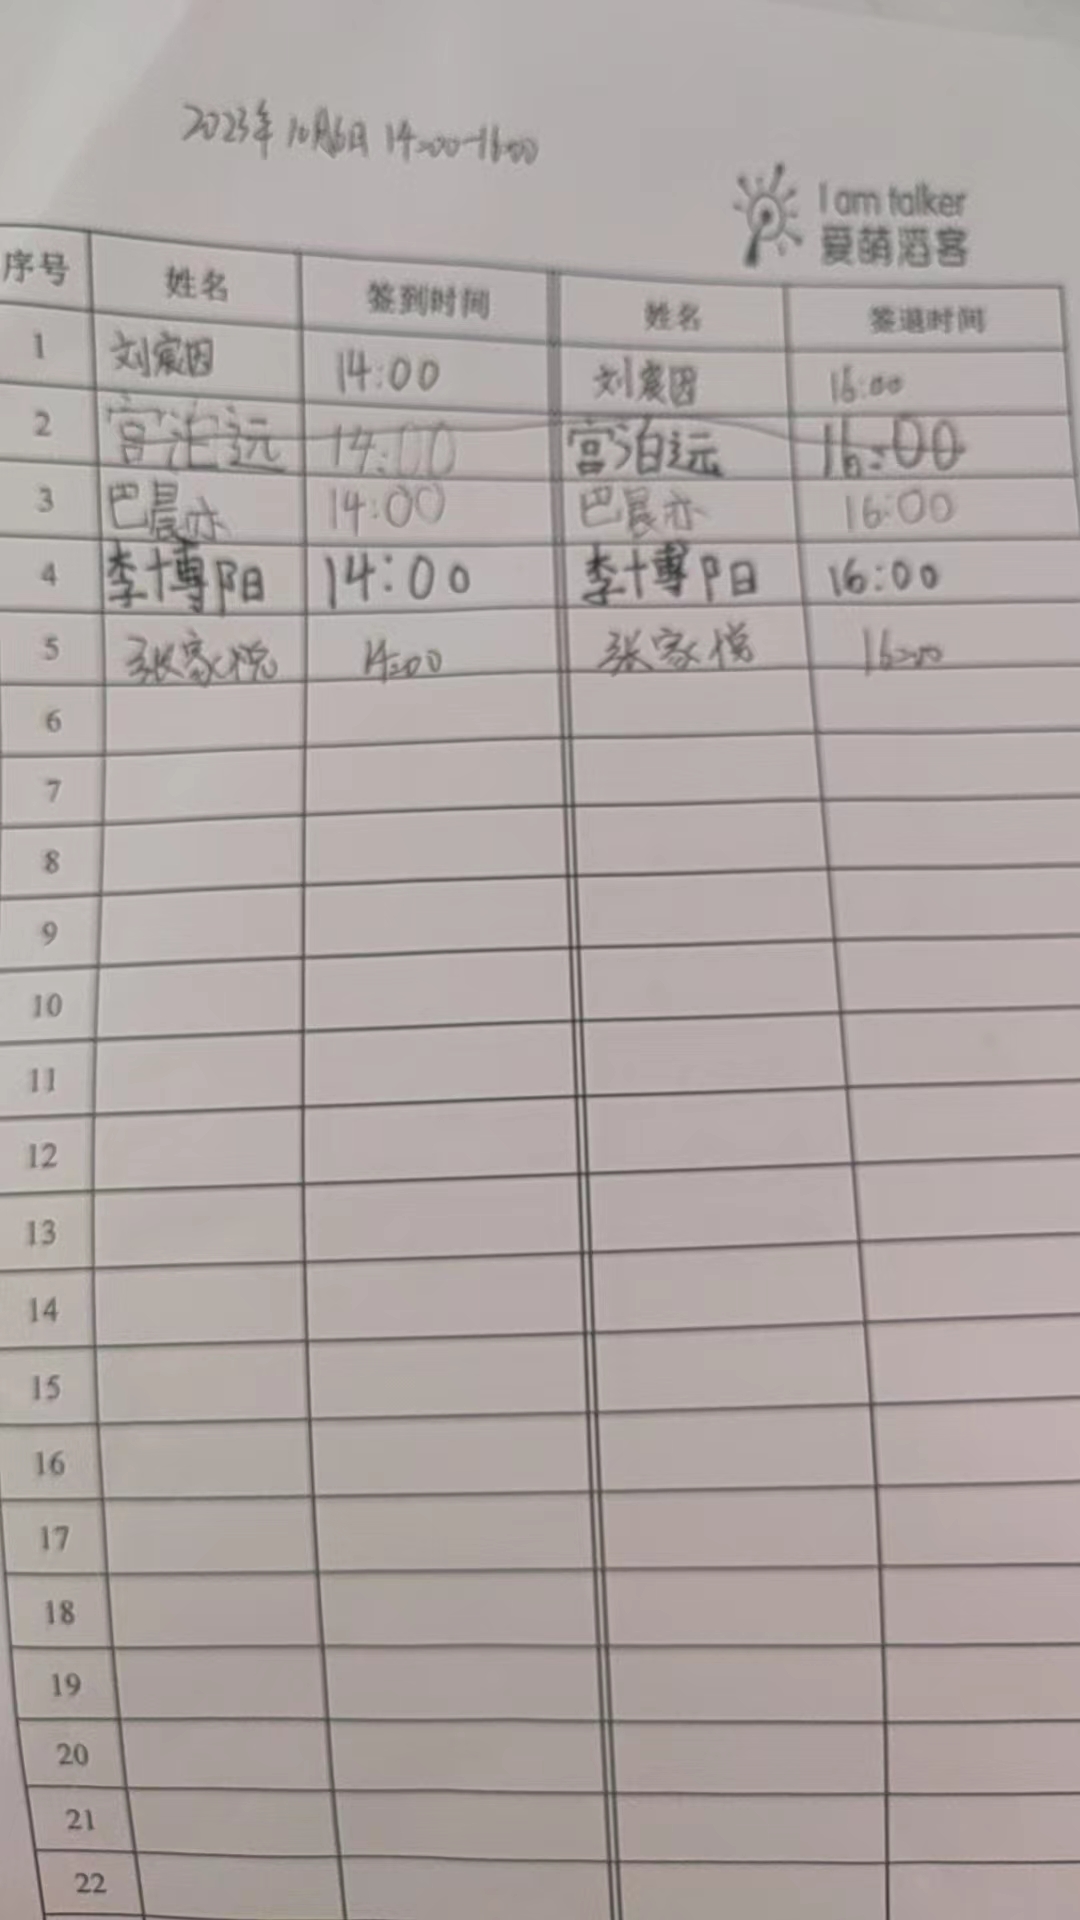 2023年10月6日 14:00-16:00
I am talker
爱萌滔客
序号 姓名 签到时间 姓名 签退时间
1 刘宸因 14:00 刘宸因 16:00
2 宫泊远 14:00 宫泊远 16:00
3 巴晨亦 14:00 巴晨亦 16:00
4 李博阳 14:00 李博阳 16:00
5 张家悦 14:00 张家悦 16:00
6
7
8
9
10
11
12
13
14
15
16
17
18
19
20
21
22